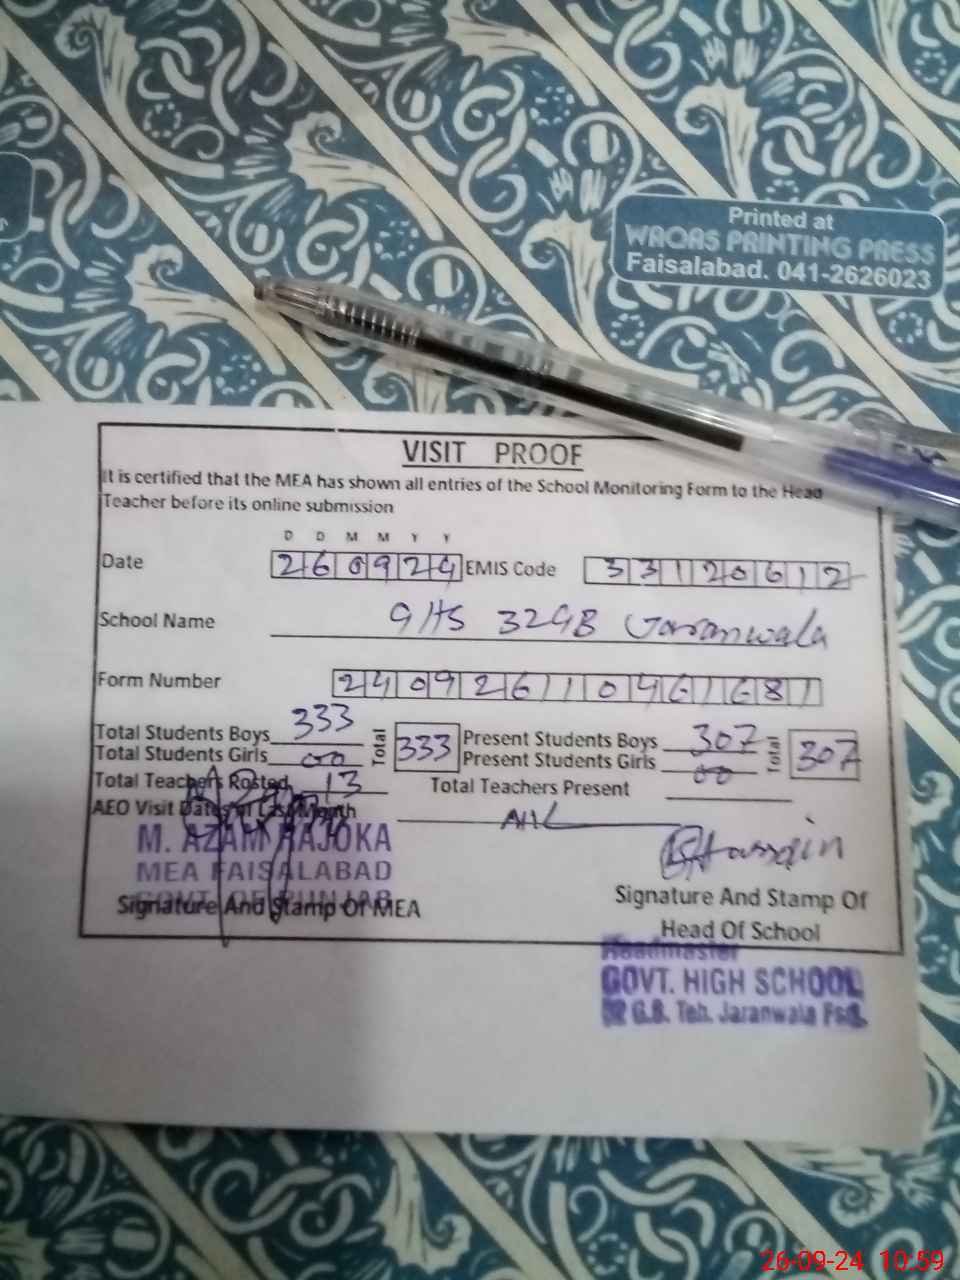 Printed at
WAQAS PRINTING PRESS
Faisalabad. 041-2626023
VISIT PROOF
It is certified that the MEA has shown all entries of the School Monitoring Form to the Head
Teacher before its online submission
D D M M Y Y
Date 260924 EMIS Code 33120612
School Name GHS 32GB Jaranwala
Form Number
Total Students Boys 333 Total 333 Present Students Boys 307 Total 307
Total Students Girls 00 Present Students Girls 00
Total Teachers Rosted 13 Total Teachers Present
AEO Visit Dates of Last Month
M. AZAM RAJOKA
MEA FAISALABAD
GOVT. OF PUNJAB
Signature And Stamp Of MEA
Signature And Stamp Of
Head Of School
Headmaster
GOVT. HIGH SCHOOL
32 G.B. Teh. Jaranwala Fsd.
26-09-24 10:59